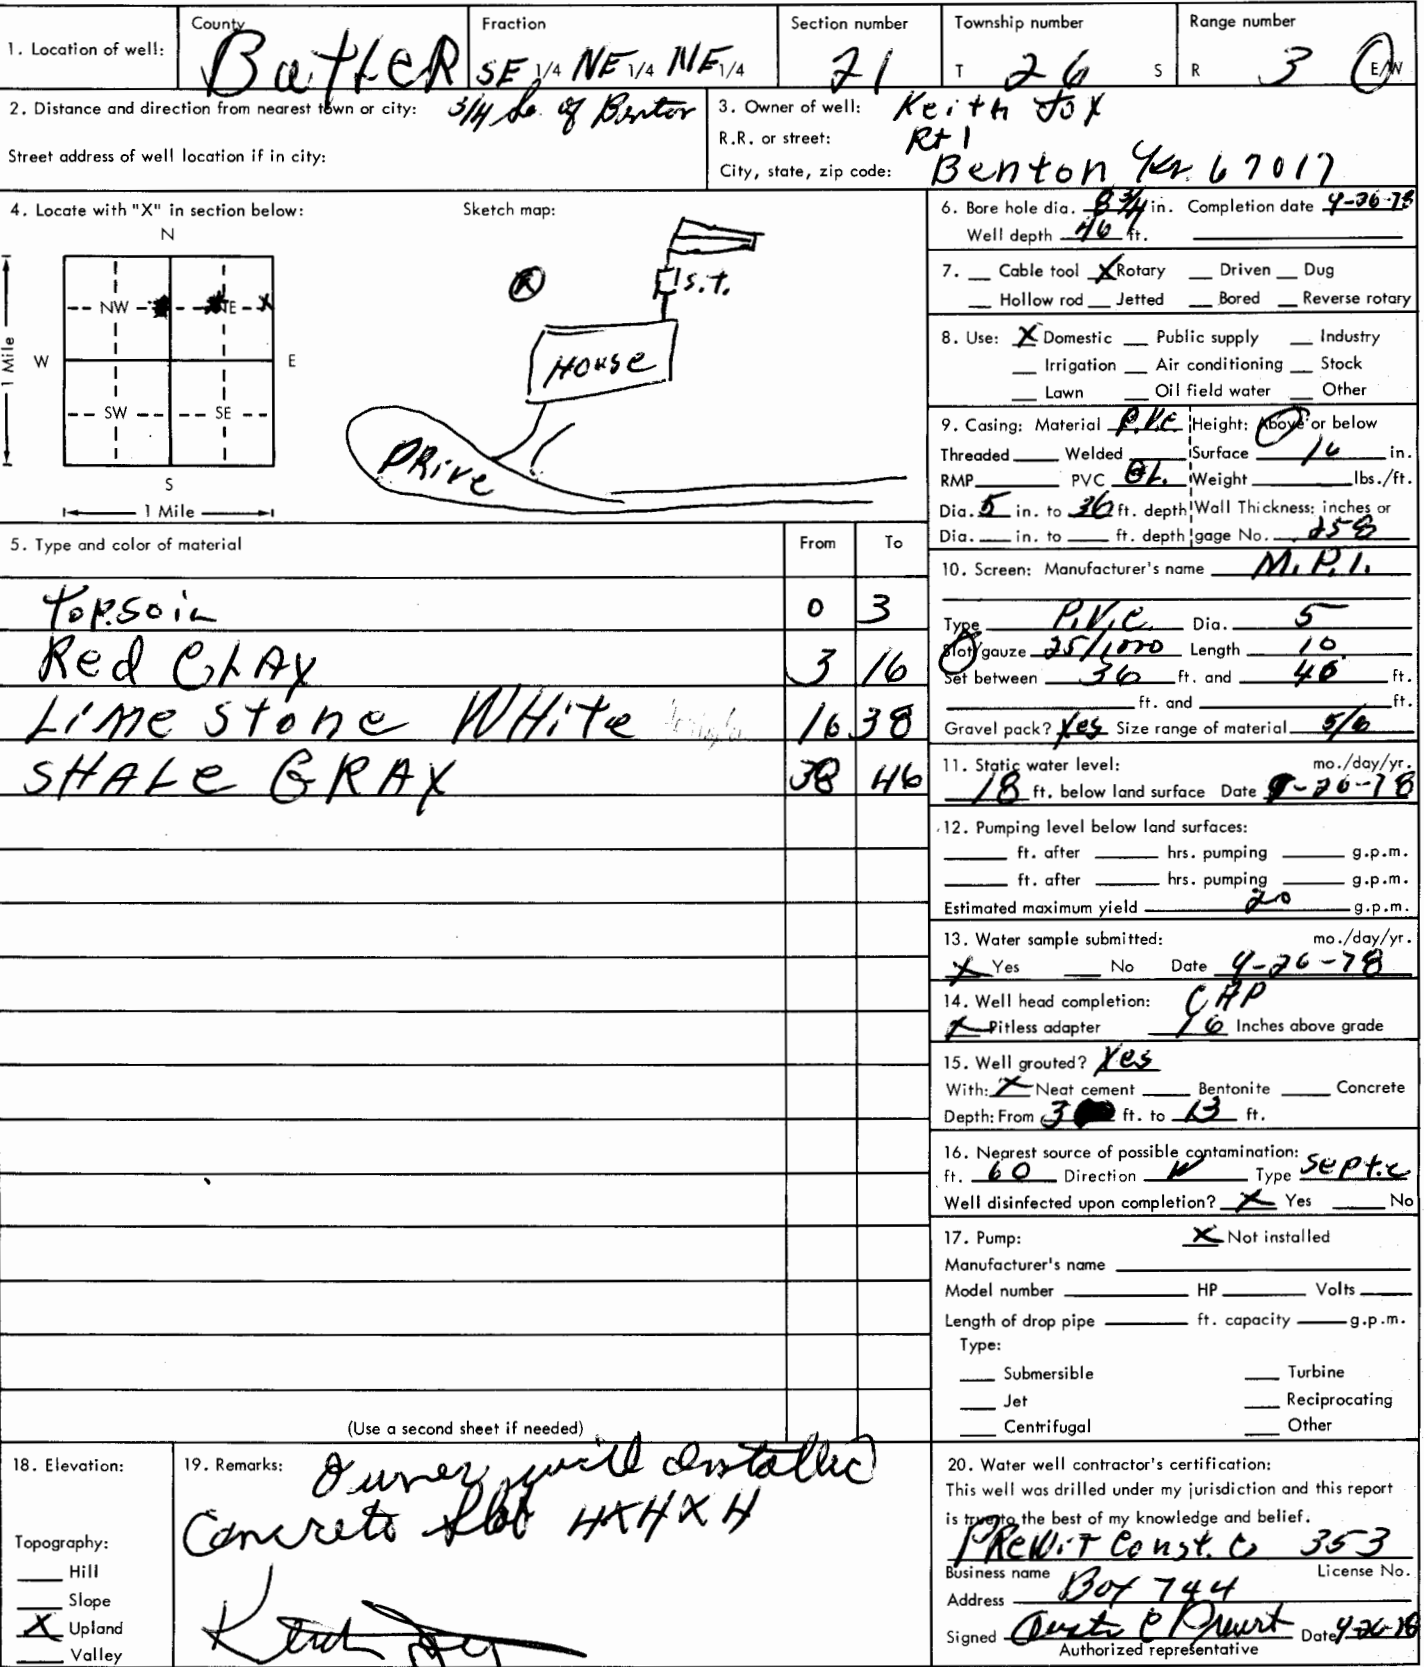 1. Location of well: County Butler Fraction SE 1/4 NE 1/4 NE 1/4 Section number 21 Township number T 26 S Range number R 3 E/W
2. Distance and direction from nearest town or city: 3/4 So. of Benton
Street address of well location if in city:
3. Owner of well: Keith Fox
R.R. or street: Rt 1
City, state, zip code: Benton Ks. 67017
4. Locate with "X" in section below:
N
NW NE X
W E
SW SE
S
1 Mile
1 Mile
Sketch map:
S.T.
HOUSE
DRive
5. Type and color of material From To
TopSoiL 0 3
Red CLAY 3 16
Lime Stone WHite 16 38
SHALe GRAY 38 46
(Use a second sheet if needed)
6. Bore hole dia. 8 3/4 in. Completion date 4-26-78
Well depth 46 ft.
7. Cable tool X Rotary Driven Dug
Hollow rod Jetted Bored Reverse rotary
8. Use: X Domestic Public supply Industry
Irrigation Air conditioning Stock
Lawn Oil field water Other
9. Casing: Material P.V.C. Height: Above or below
Threaded Welded Surface 16 in.
RMP PVC GL. Weight lbs./ft.
Dia. 5 in. to 36 ft. depth Wall Thickness: inches or
Dia. in. to ft. depth gage No. .258
10. Screen: Manufacturer's name M.P.I.
Type P.V.C. Dia. 5
Slot/gauze 25/1000 Length 10
Set between 36 ft. and 46 ft.
ft. and ft.
Gravel pack? Yes Size range of material 5/8
11. Static water level: mo./day/yr.
18 ft. below land surface Date 4-26-78
12. Pumping level below land surfaces:
ft. after hrs. pumping g.p.m.
ft. after hrs. pumping g.p.m.
Estimated maximum yield 20 g.p.m.
13. Water sample submitted: mo./day/yr.
X Yes No Date 4-26-78
14. Well head completion: CAP
X Pitless adapter 16 Inches above grade
15. Well grouted? Yes
With: X Neat cement Bentonite Concrete
Depth: From 3 ft. to 13 ft.
16. Nearest source of possible contamination:
ft. 60 Direction W Type Septic
Well disinfected upon completion? X Yes No
17. Pump: X Not installed
Manufacturer's name
Model number HP Volts
Length of drop pipe ft. capacity g.p.m.
Type:
Submersible Turbine
Jet Reciprocating
Centrifugal Other
18. Elevation:
Topography:
Hill
Slope
X Upland
Valley
19. Remarks: Owner will installed
Concrete slab 4X4X4
20. Water well contractor's certification:
This well was drilled under my jurisdiction and this report
is true to the best of my knowledge and belief.
PReWiT Const. Co 353
Business name License No.
Address Box 744
Signed Date 4-26-78
Authorized representative